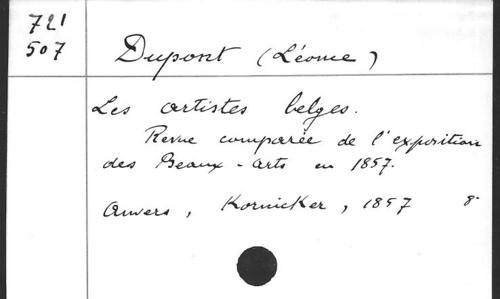 721
507
Dupont (Léonce)
Les artistes belges.
Revue comparée de l'exposition
des Beaux-arts en 1857.
Anvers, Kornicker, 1857 8°